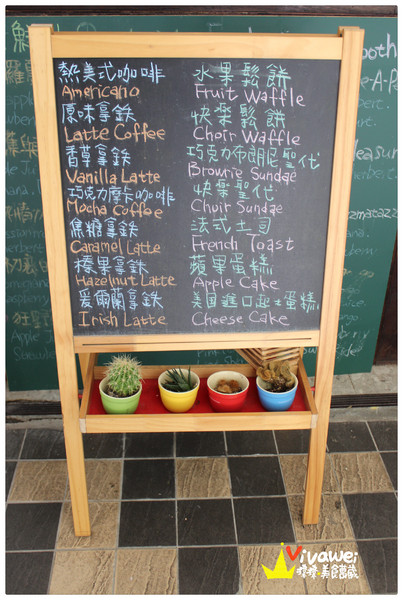 熱美式咖啡
Americano
原味拿鉄
Latte Coffee
香草拿鉄
Vanilla Latte
巧克力摩卡咖啡
Mocha Coffee
焦糖拿鉄
Caramel Latte
榛果拿鉄
Hazelnut Latte
爱爾蘭拿鉄
Irish Latte
水果鬆餅
Fruit Waffle
快樂鬆餅
Choir Waffle
巧克力布朗尼聖代
Brownie Sundae
快樂聖代
Choir Sundae
法式土司
French Toast
蘋果蛋糕
Apple Cake
美国進口起士蛋糕
Cheese Cake
Vivawei